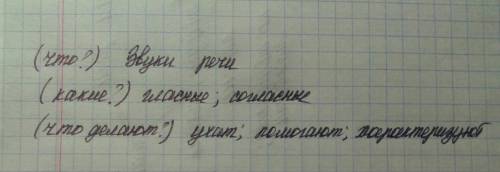 (что?) Звуки речи
(какие?) гласные; согласные
(что делают?) учат; помогают; характеризуют